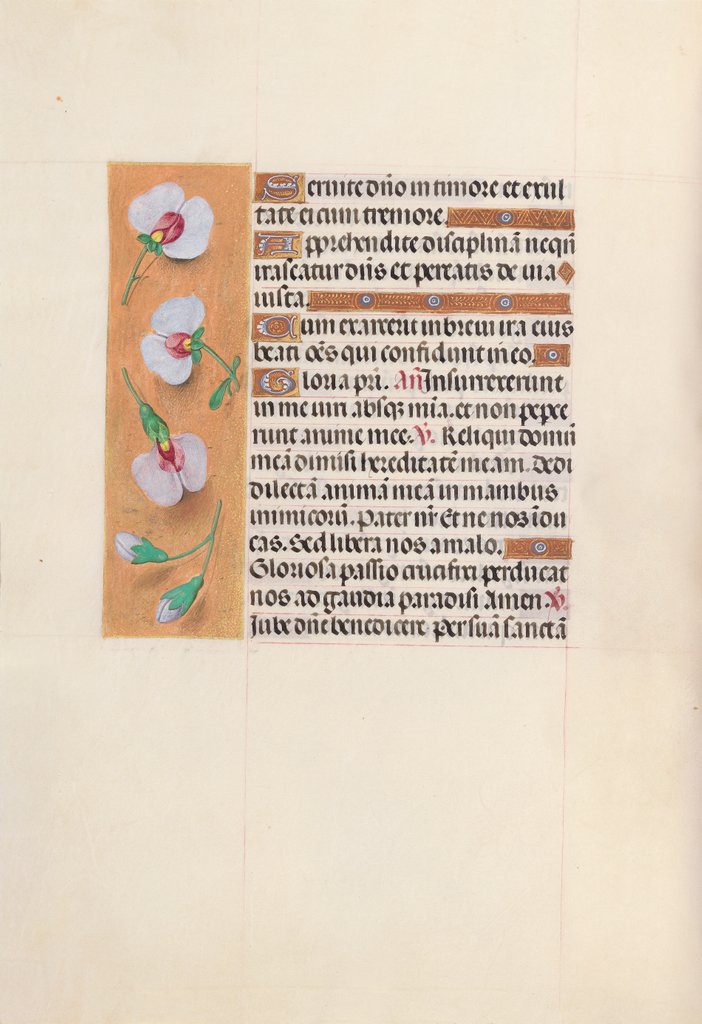 Seruite dño in timore et exul
tate ei cum tremore.
Apprehendite disciplinã nequñ
irascatur dñs et pereatis de uia
iusta.
Cum exarserit in breui ira eius
beati oẽs qui confidunt in eo.
Gloria pri. Añ Insurrexerunt
in me uiri absq; mia. et non peper
runt anime mee. V. Reliqui domũ
meã dimisi hereditatẽ meam. Dedi
dilectã animã meã in manibus
inimicorũ. Pater nr̃ Et ne nos ĩdu
cas. Sed libera nos a malo.
Gloriosa passio crucifixi perducat
nos ad gaudia paradisi Amen V.
Iube dñe benedicere Per suã sanctã